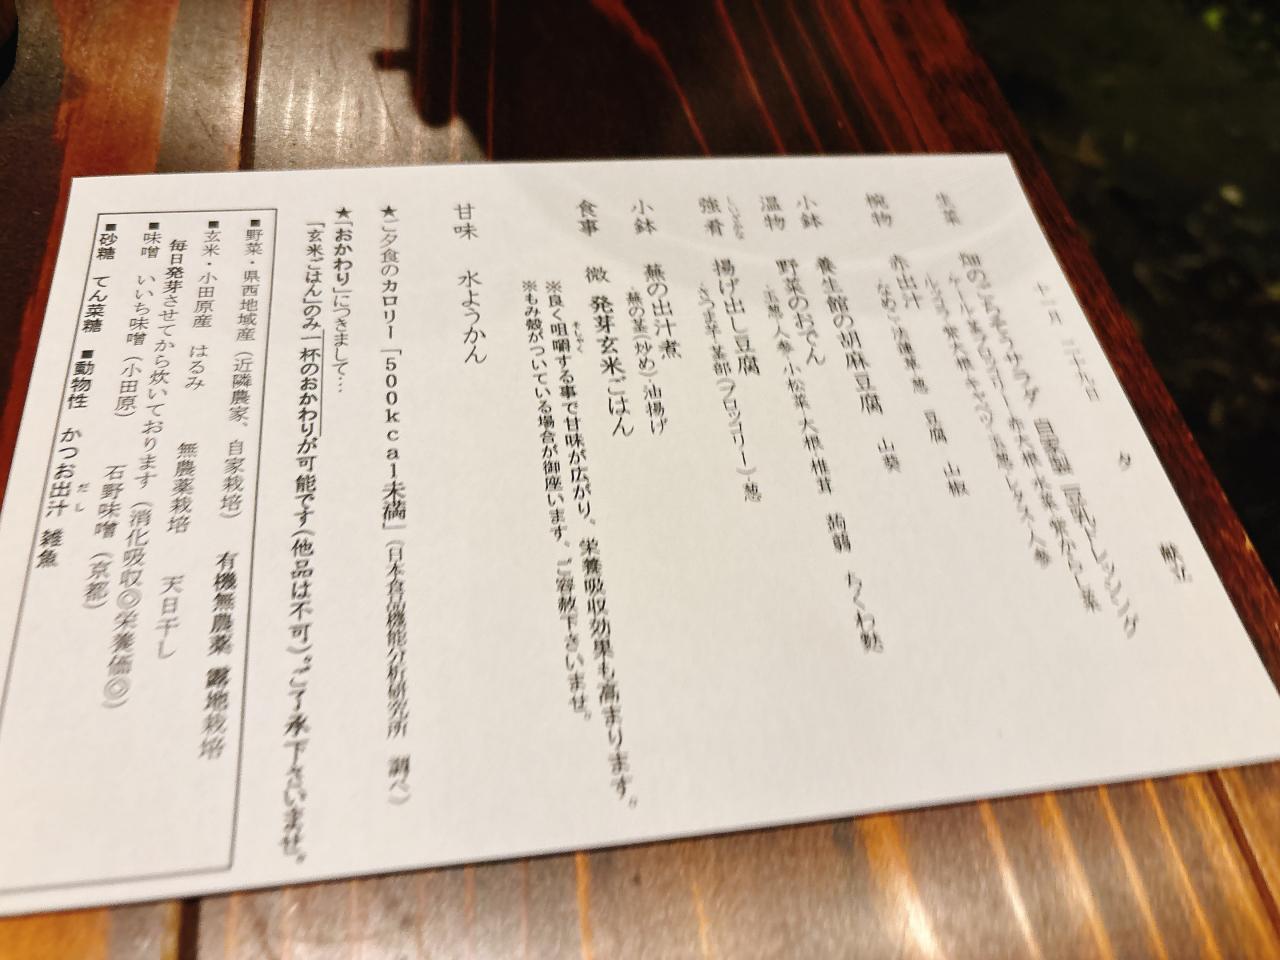 夕 献立
十二月 二十九日
生菜 畑のごちそうサラダ 自家製 豆乳ドレッシング
ケール・茎ブロッコリー・赤大根・水菜・紫からし菜
ルッコラ・紫大根・キャベツ・玉葱・レタス・人参
椀物 赤出汁
なめこ・法蓮草・葱 豆腐 山椒
小鉢 養生館の胡麻豆腐 山葵
温物 野菜のおでん
玉葱・人参・小松菜・大根・椎茸 蒟蒻 ちくわ麩
強肴 揚げ出し豆腐
しいざかな
さつま芋・茎部(ブロッコリー)・葱
小鉢 蕪の出汁煮
・蕪の茎(炒め)・油揚げ
食事 微 発芽玄米ごはん
※良く咀嚼する事で甘味が広がり、栄養吸収効果も高まります。
そしゃく
※もみ殻がついている場合が御座います。ご容赦下さいませ。
甘味 水ようかん
★ご夕食のカロリー「500kcal未満」(日本食品機能分析研究所 調べ)
★「おかわり」につきまして…
「玄米ごはん」のみ一杯のおかわりが可能です(他品は不可)。ご了承下さいませ。
■野菜・県西地域産(近隣農家、自家栽培) 有機無農薬 露地栽培
■玄米・小田原産 はるみ 無農薬栽培 天日干し
毎日発芽させてから炊いております(消化吸収◎栄養価◎)
■味噌 いいち味噌(小田原) 石野味噌(京都)
■砂糖 てん菜糖 ■動物性 かつお出汁 雑魚
だし